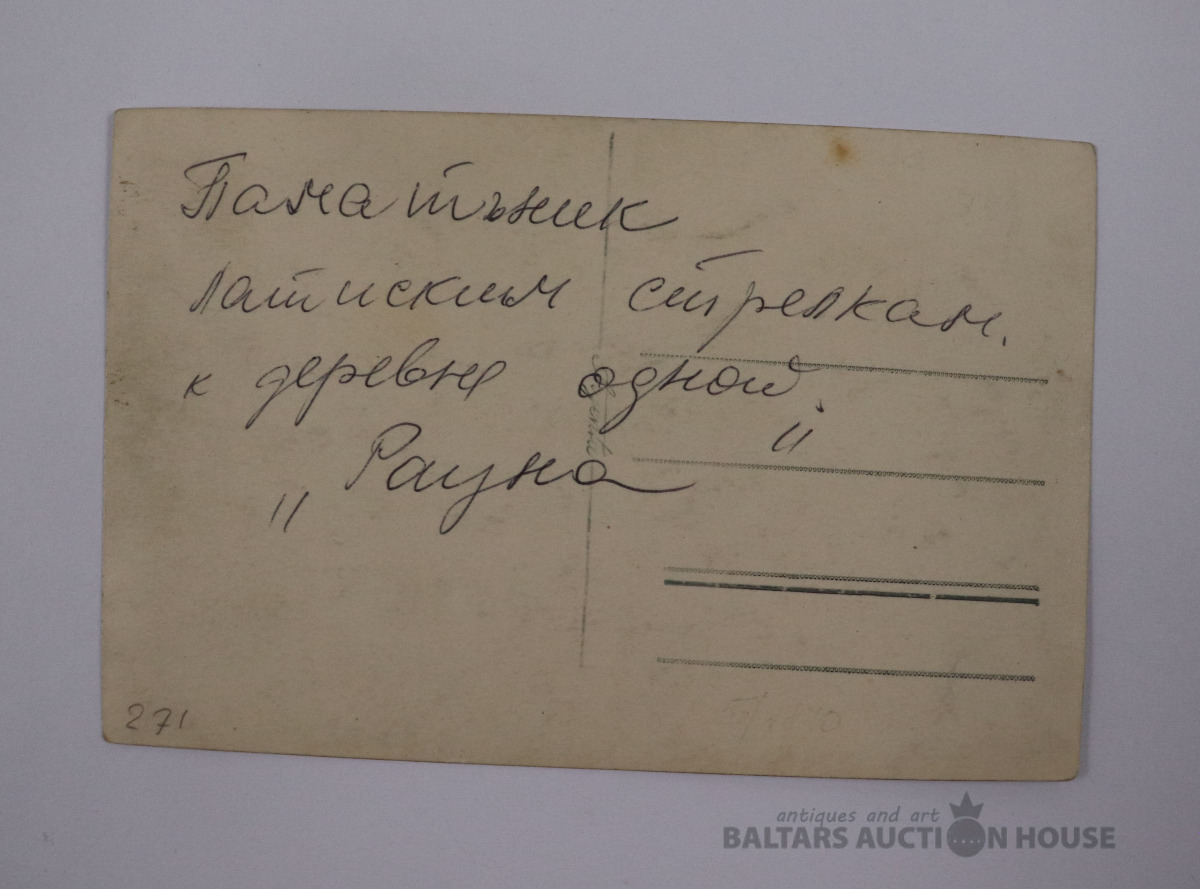 Паматъник
Латиским стрелкам.
к деревне одной.
„ Рауна "
271
antiques and art
BALTARS AUCTION HOUSE